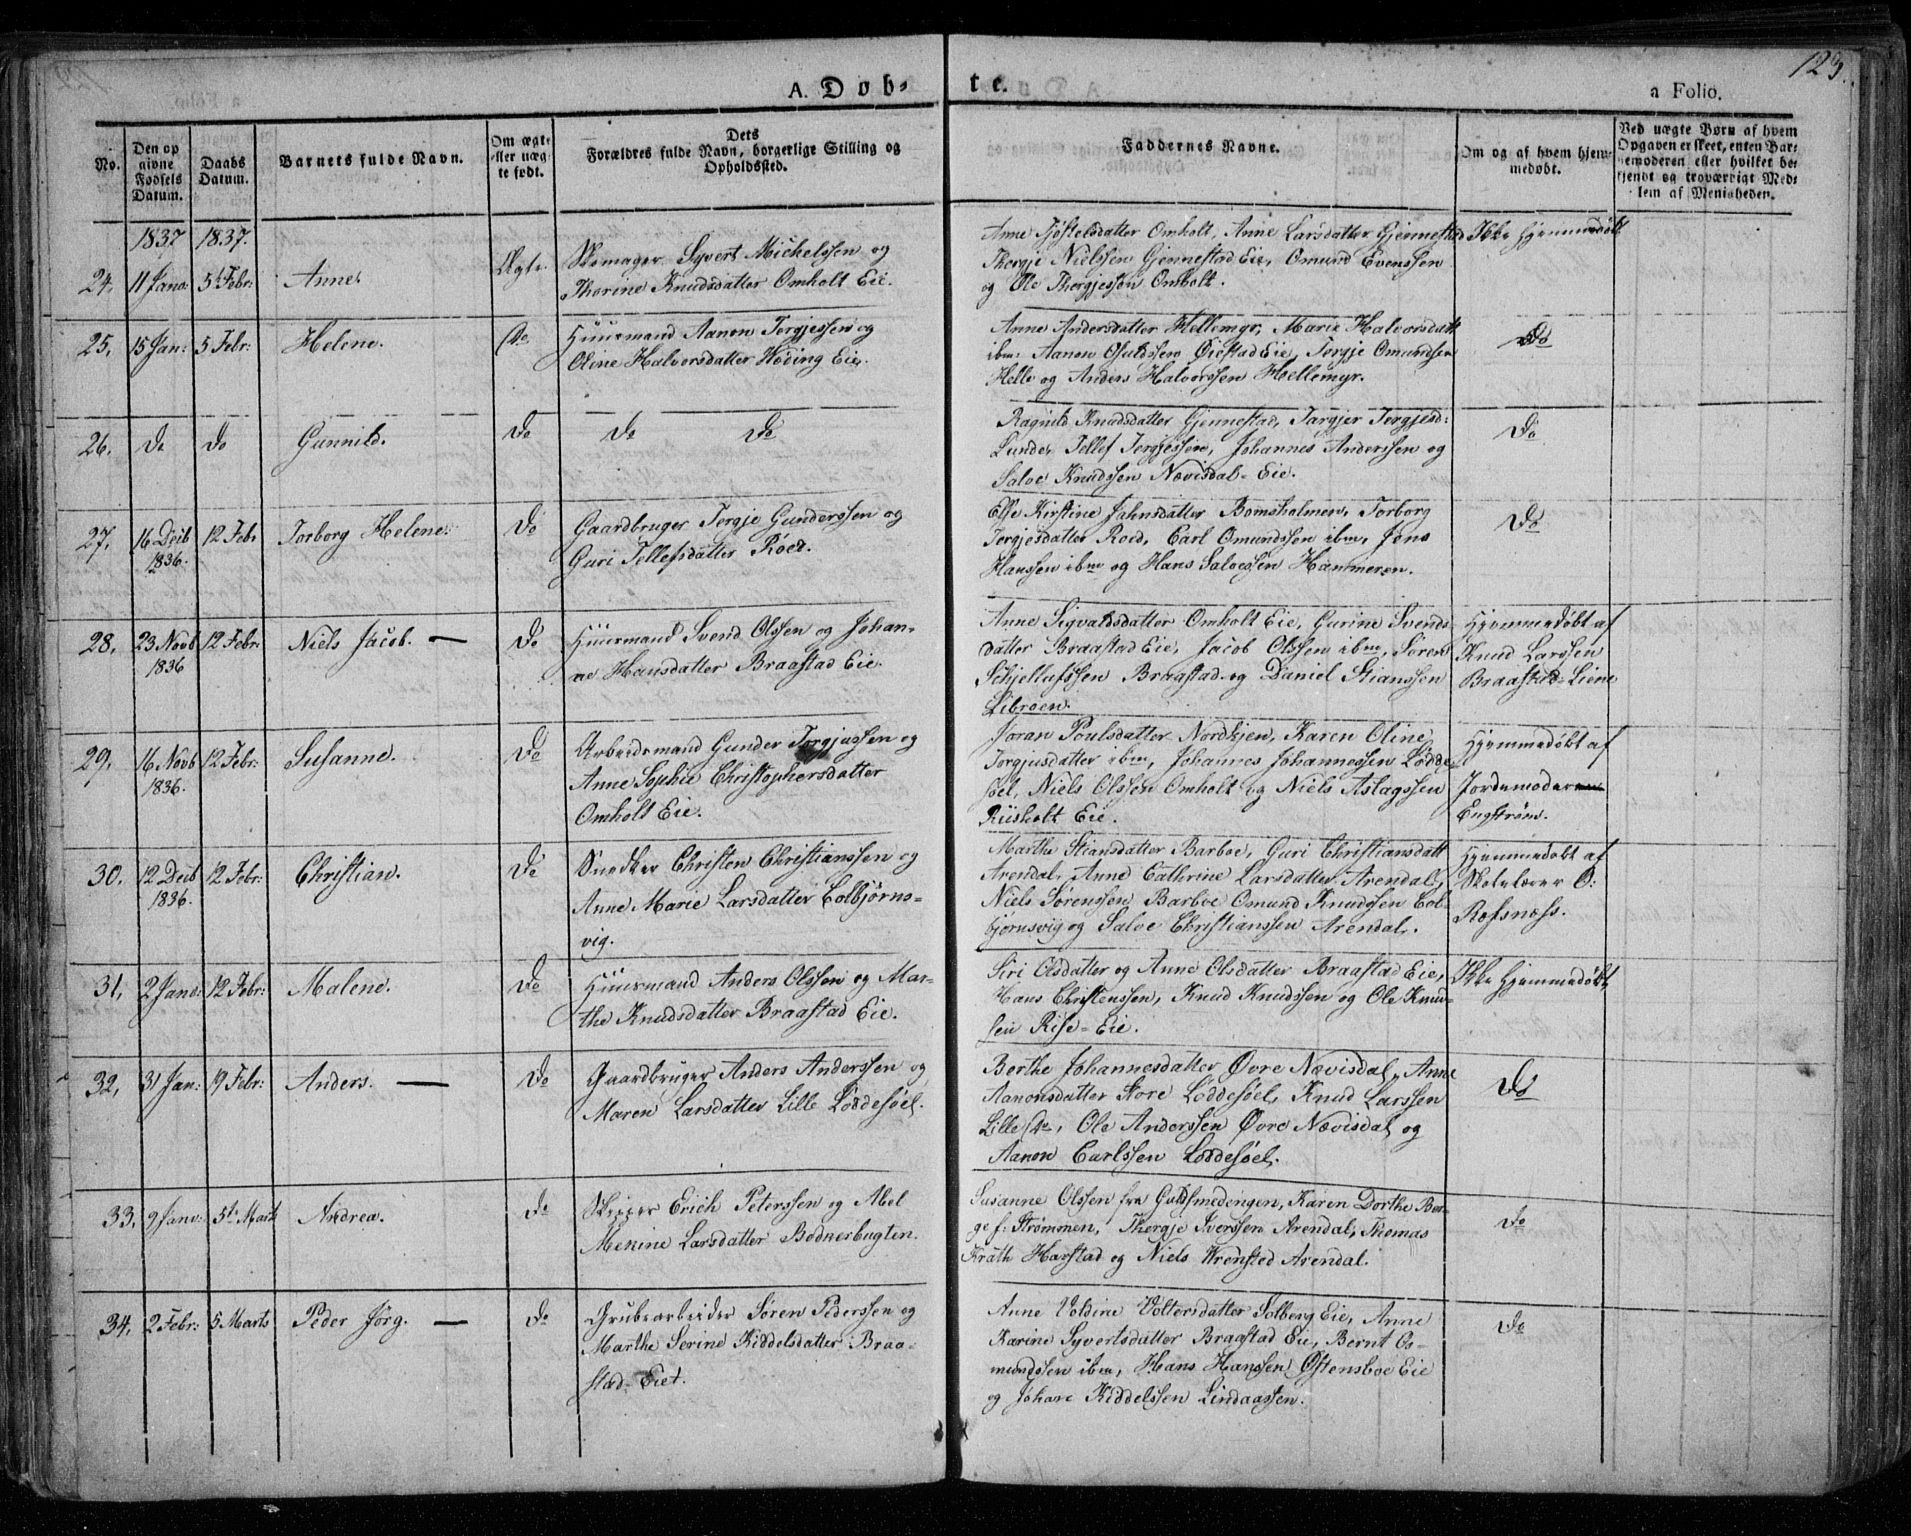 123.
A. Døb-
te.
a Folio.
No.
Den op
givne
Fødsels
Datum.
Daabs
Datum.
Barnets fulde Navn.
Om ægte
eller uæg-
te født.
Dets
Forældres fulde Navn, borgerlige Stilling og
Opholdssted.
Faddernes Navne.
Om og af hvem hjem-
medøbt.
Ved uægte Børn af hvem
Opgaven er skeet, enten Bar-
nemoderen eller hvilket be-
kjendt og troværdigt Med-
lem af Menigheden.
1837 1837.
24. 11 Janv: 5t Febr: Anne. Ægte.
Skomager Syvert Michelssen og
Thorine Knudsdatter Omholt Eie.
Anne Tjøstelsdatter Omholt, Anne Larsdatter Gjennestad
Thergje Nielssen Gjennestad Eie, Omund Evenssen
og Ole Thergjessen Omholt.
Ikke Hjemmedøbt
25. 15 Jan: 5 Febr: Helene. Do
Huusmand Aanon Tergjessen og
Oline Halvorsdatter Høding Eie.
Anne Andersdatter Hellemyr, Marie Halvorsdatt
ibm: Aanon Osuldssen Øiestad Eie, Tergje Omundsen
Helle og Anders Halvorssen Hellemyr.
Do
26. Do Do Gunnild. Do Do Do
Ragnild Knudsdatter Gjennestad, Targjer Tergjesd:
Lunde, Tellef Tergjessen, Johannes Anderssen og
Salve Knudssen Nævisdal-Eie.
Do
27. 16 Decb 1836. 12 Febr Torborg Helene. Do
Gaardbruger Tergje Gunderssen og
Guri Tellefsdatter Røed.
Else Kirstine Jahnsdatter Bomsholmen, Torborg
Tergjesdatter Roed, Carl Omundssen ibm, Jens
Hanssen ibm og Hans Salvessen Hammeren.
Do
28. 23 Novb 1836 12 Febr: Niels Jacob. — Do
Huusmand Svend Olssen og Johan-
ne Hansdatter Braastad Eie.
Anne Sigvaldsdatter Omholt Eie, Gurine Svends-
datter Braastad Eie, Jacob Olssen ibm, Søren
Schjellufssen Braastad og Daniel Stianssen
Libroen.
Hjemmedøbt af
Knud Larssen
Braastad-Liene
29. 16 Novb 1836. 12 Febr: Susanne. Do
Arbeidsmand Gunder Torgjussen og
Anne Sophie Christophersdatter
Omholt Eie.
Joran Poulsdatter Nordkjen, Karen Oline
Torgjusdatter ibm, Johannes Johannessen Lødde-
søel, Niels Olssen Omholt og Niels Aslagssen
Riisholt Eie.
Hjemmedøbt af
Jordemoder
Engstrøm.
30. 12 Decb 1836. 12 Febr: Christian. Do
Snedker Christen Christianssen og
Anne Marie Larsdatter Colbjørns-
vig.
Marthe Stiansdatter Barboe, Guri Christiansdatt
Arendal, Anne Cathrine Larsdatter Arendal,
Niels Sørenssen Barboe Omund Knudssen Col-
bjørnsvig og Salve Christianssen Arendal.
Hjemmedøbt af
Skolelærer O:
Refsness.
31. 2 Janv: 12 Febr: Malene. Do
Huusmand Anders Olssen og Mar-
the Knudsdatter Braastad Eie.
Siri Olsdatter og Anne Olsdatter Braastad Eie,
Hans Christenssen, Knud Knudssen og Ole Knud-
sen Rise-Eie.
Ikke Hjemmedøbt
32. 31 Jan: 19 Febr: Anders. — Do
Gaardbruger Anders Anderssen og
Maren Larsdatter Lille Løddesøel.
Berthe Johannesdatter Øvre Nævisdal, Anne
Aanonsdatter Store Løddesøel, Knud Larssen
Lille Do, Ole Anderssen Øvre Nævisdal og
Aanon Carlssen Løddesøel.
Do
33. 9 Janv: 5t Marts Andrea. Do
Skipper Erich Peterssen og Abel
Mekine Larsdatter Bodnerbugten.
Susanne Olssen fra Guldsmedengen, Karen Dorthe Ber-
ge f: Strømmen, Thergje Iverssen Arendal, Thomas
Krath Harstad og Niels Wrensted Arendal.
Do
34. 2 Febr: 5 Marts Peder Jørg. — Do
Grubearbeider Søren Pederssen og
Marthe Serine Kiddelsdatter Braa-
stad-Eiet.
Anne Voldine Voltersdatter Solberg Eie, Anne
Karine Syvertsdatter Braastad Eie, Bernt Os-
mundssen ibm, Hans Hanssen Østensboe Eie
og Johan Kiddelssen Lindaassen.
Do